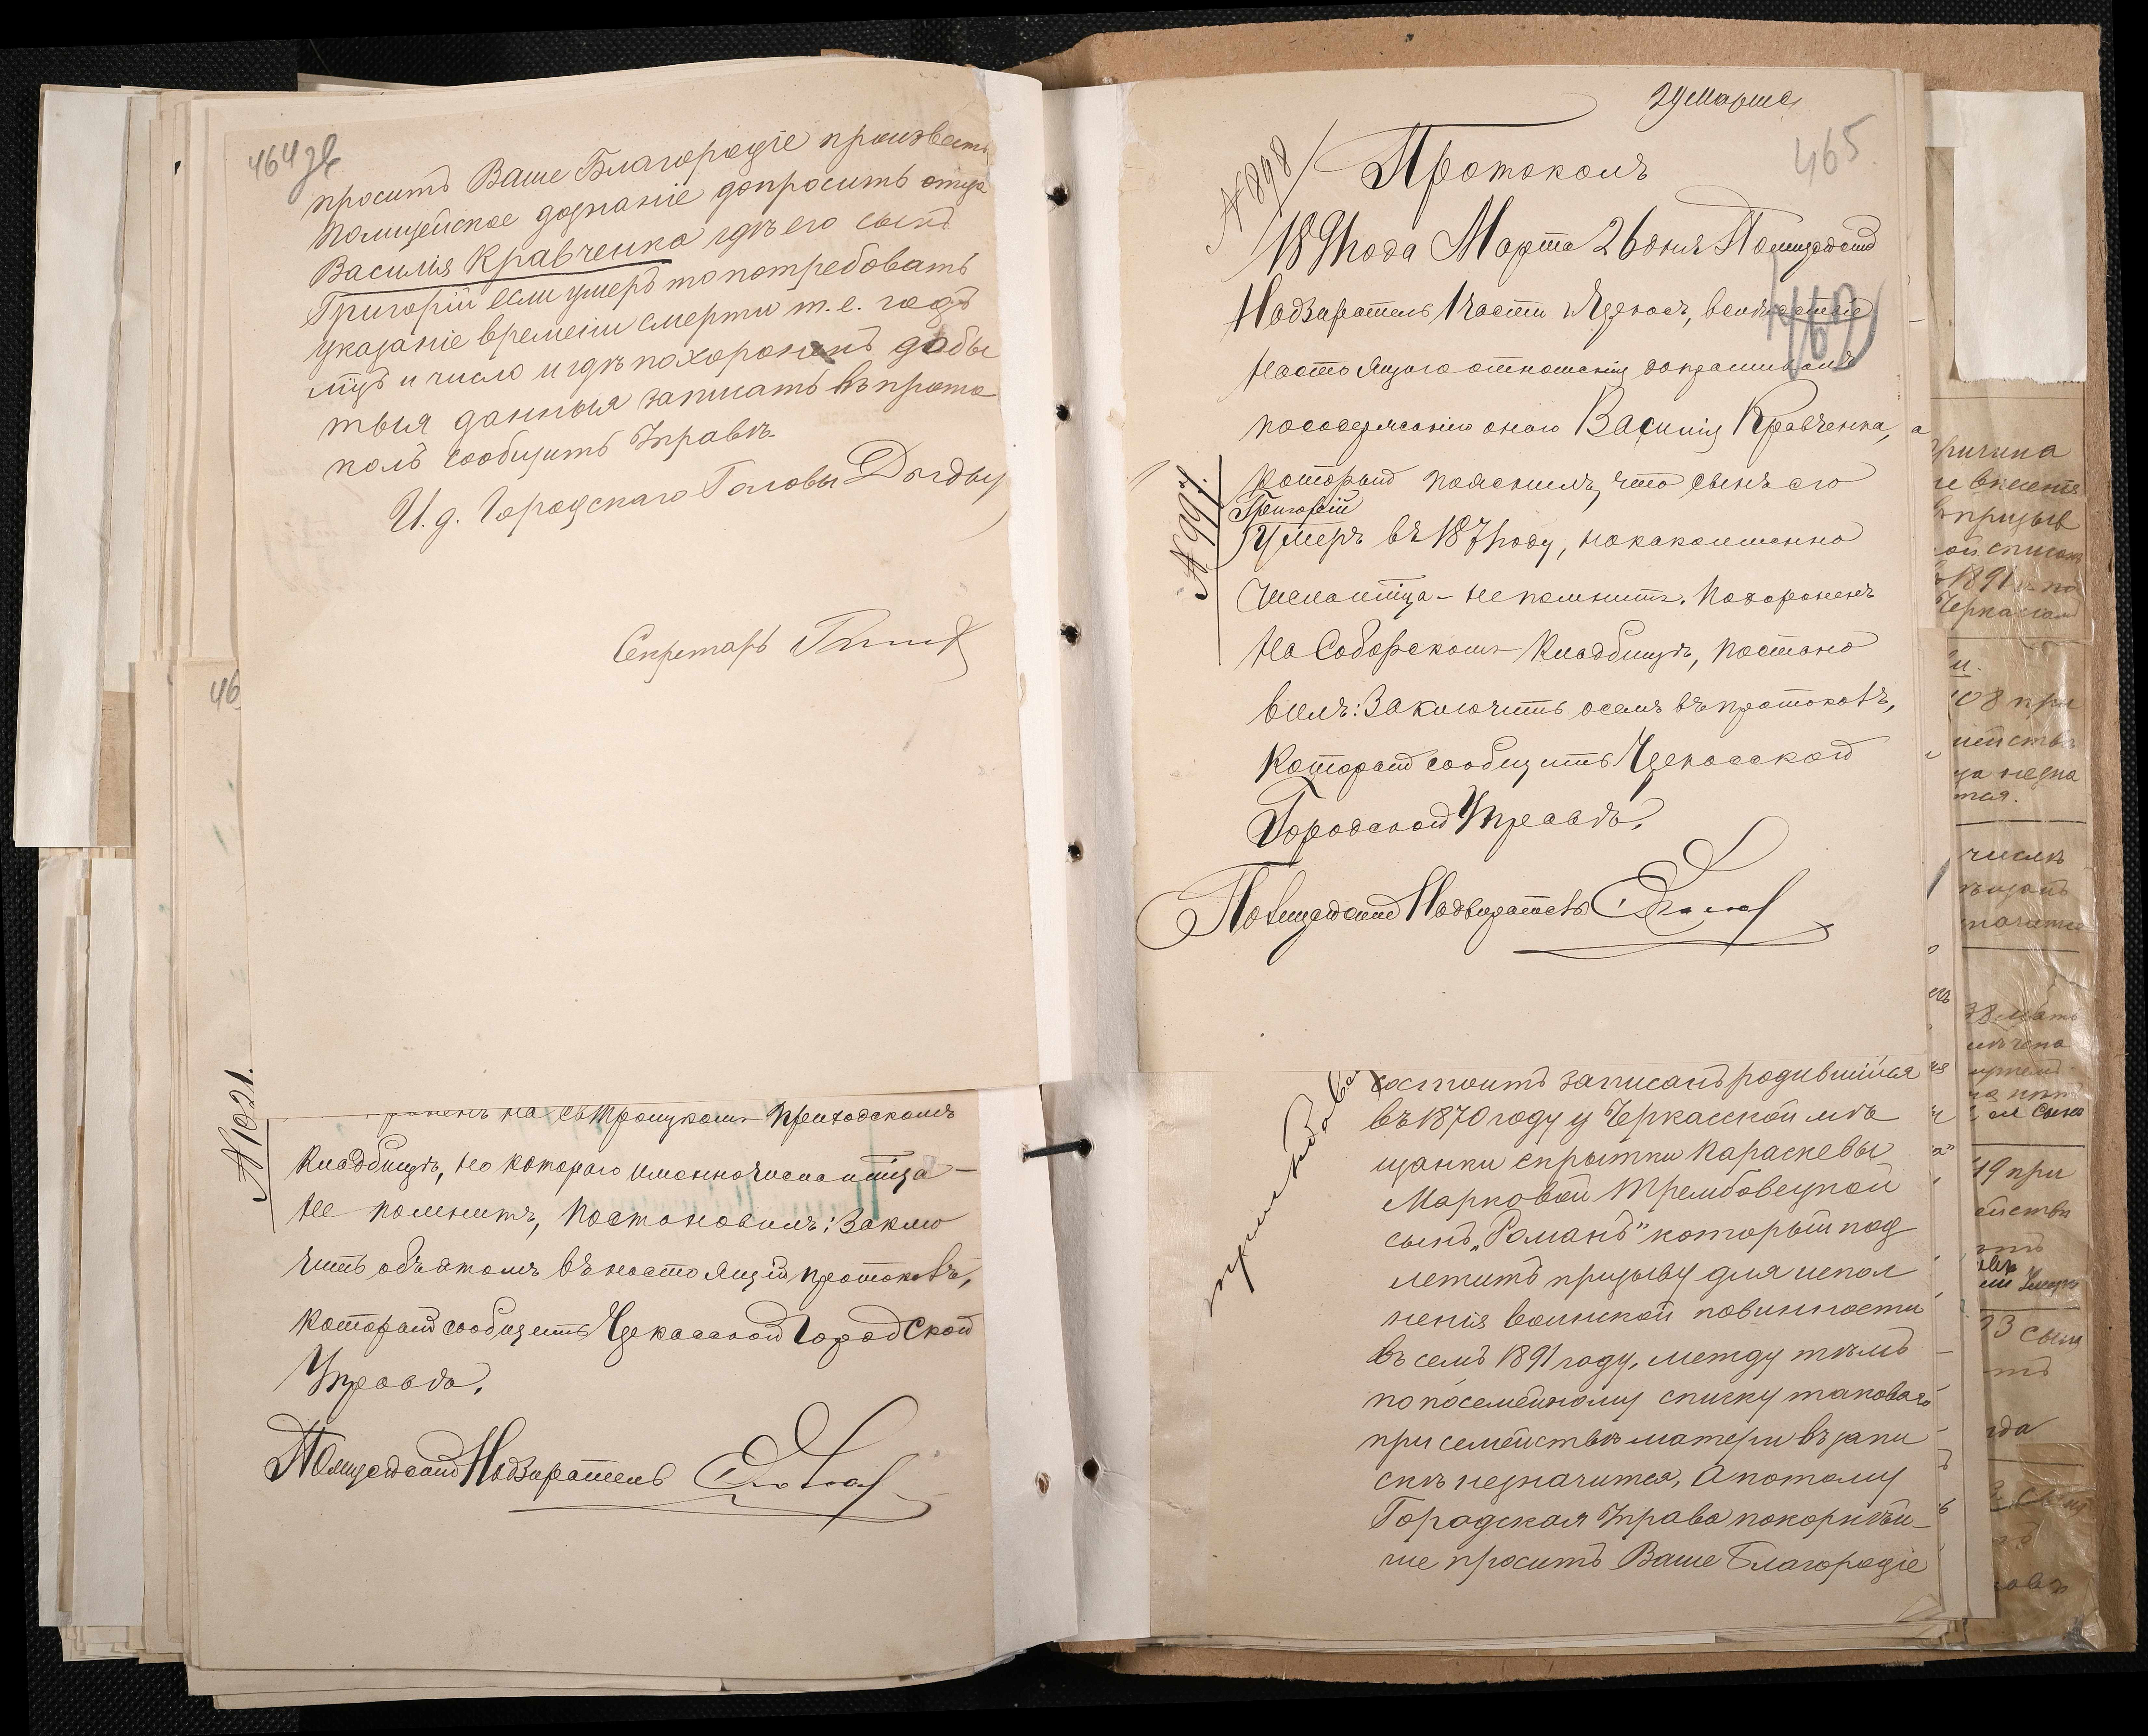 464 зв
просить Ваше Благородіе произвесть
полицейское дознаніе допросить отца
Василія Кравченка гдѣ его сынъ
Григорій если умеръ то потребовать
указаніе времени смерти т. е. годъ
мцъ и число и гдѣ похороненъ дабы
тыя данныя записать въ прото
колъ сообщить Управѣ.
И. д. Городскаго Головы
Секретарь
46
№ 1021.
на Св Троицкомъ приходскомъ
кладбищѣ, но котораго именно числа и мѣца —
не помнитъ, постановилъ: Заклю
чить объ этомъ въ настоящій протоколъ,
который сообщить Черкасской Городской
Управѣ.
Полицейскій Надзиратель
29 Марта
465
№ 898
Протоколъ
1891 года Марта 26 дня Полицейскій
Надзиратель 1 части г. Черкасъ, вслѣдствіе
469
настоящаго отношенія допрашивалъ
по содержанію онаго Василія Кравченка,
который пояснилъ, что сынъ его
Григорій
умеръ въ 1871 году, но какого именно
№ 997.
числа и мѣца — не помнитъ. Похороненъ
на Соборскомъ кладбищѣ, постано
вилъ: Заключить о семъ въ протоколъ,
который сообщить Черкасской
Городской Управѣ.
Полицейскій Надзиратель
состоитъ записанъ родившійся
въ 1870 году у Черкасской мѣ
щанки скрытки Параскевы
Марковой Трембовецкой
сынъ „Романъ" который под
летитъ призыву для испол
ненія воинской повинности
въ семъ 1891 году, между тѣмъ
по посемейному списку таковаго
при семействѣ матери въ запи
скѣ незначится, А потому
Городская Управа покорнѣй-
ше просить Ваше Благородіе
причина
призыв
1891
108 при
числѣ
38 мать
49 при
сына